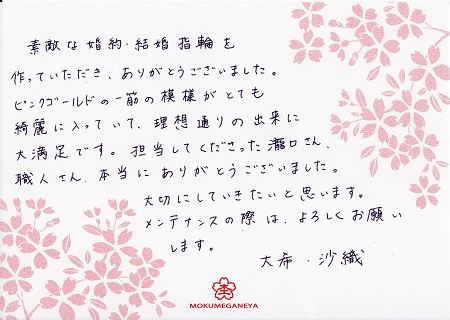 素敵な婚約・結婚指輪を
作っていただき、ありがとうございました。
ピンクゴールドの一筋の模様がとても
綺麗に入っていて、理想通りの出来に
大満足です。担当してくださった瀧口さん、
職人さん、本当にありがとうございました。
大切にしていきたいと思います。
メンテナンスの際は、よろしくお願い
します。
大希・沙織
MOKUMEGANEYA